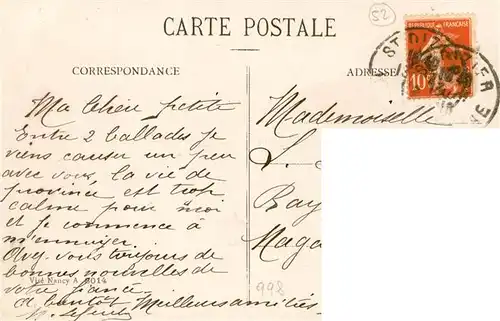 CARTE POSTALE
52
CORRESPONDANCE
ADRESSE
REPUBLIQUE FRANÇAISE
10
ST DIZIER
Ma chère petite
Entre 2 ballades je
viens causer un peu
avec vous, la vie de
province est trop
calme pour moi
et je commence à
m'ennuyer.
Avez-vous toujours de
bonnes nouvelles de
votre fiancé
Visé Nancy A 2014
A bientôt Meilleures amitiés
Mademoiselle
L.
Ray
Maga
998